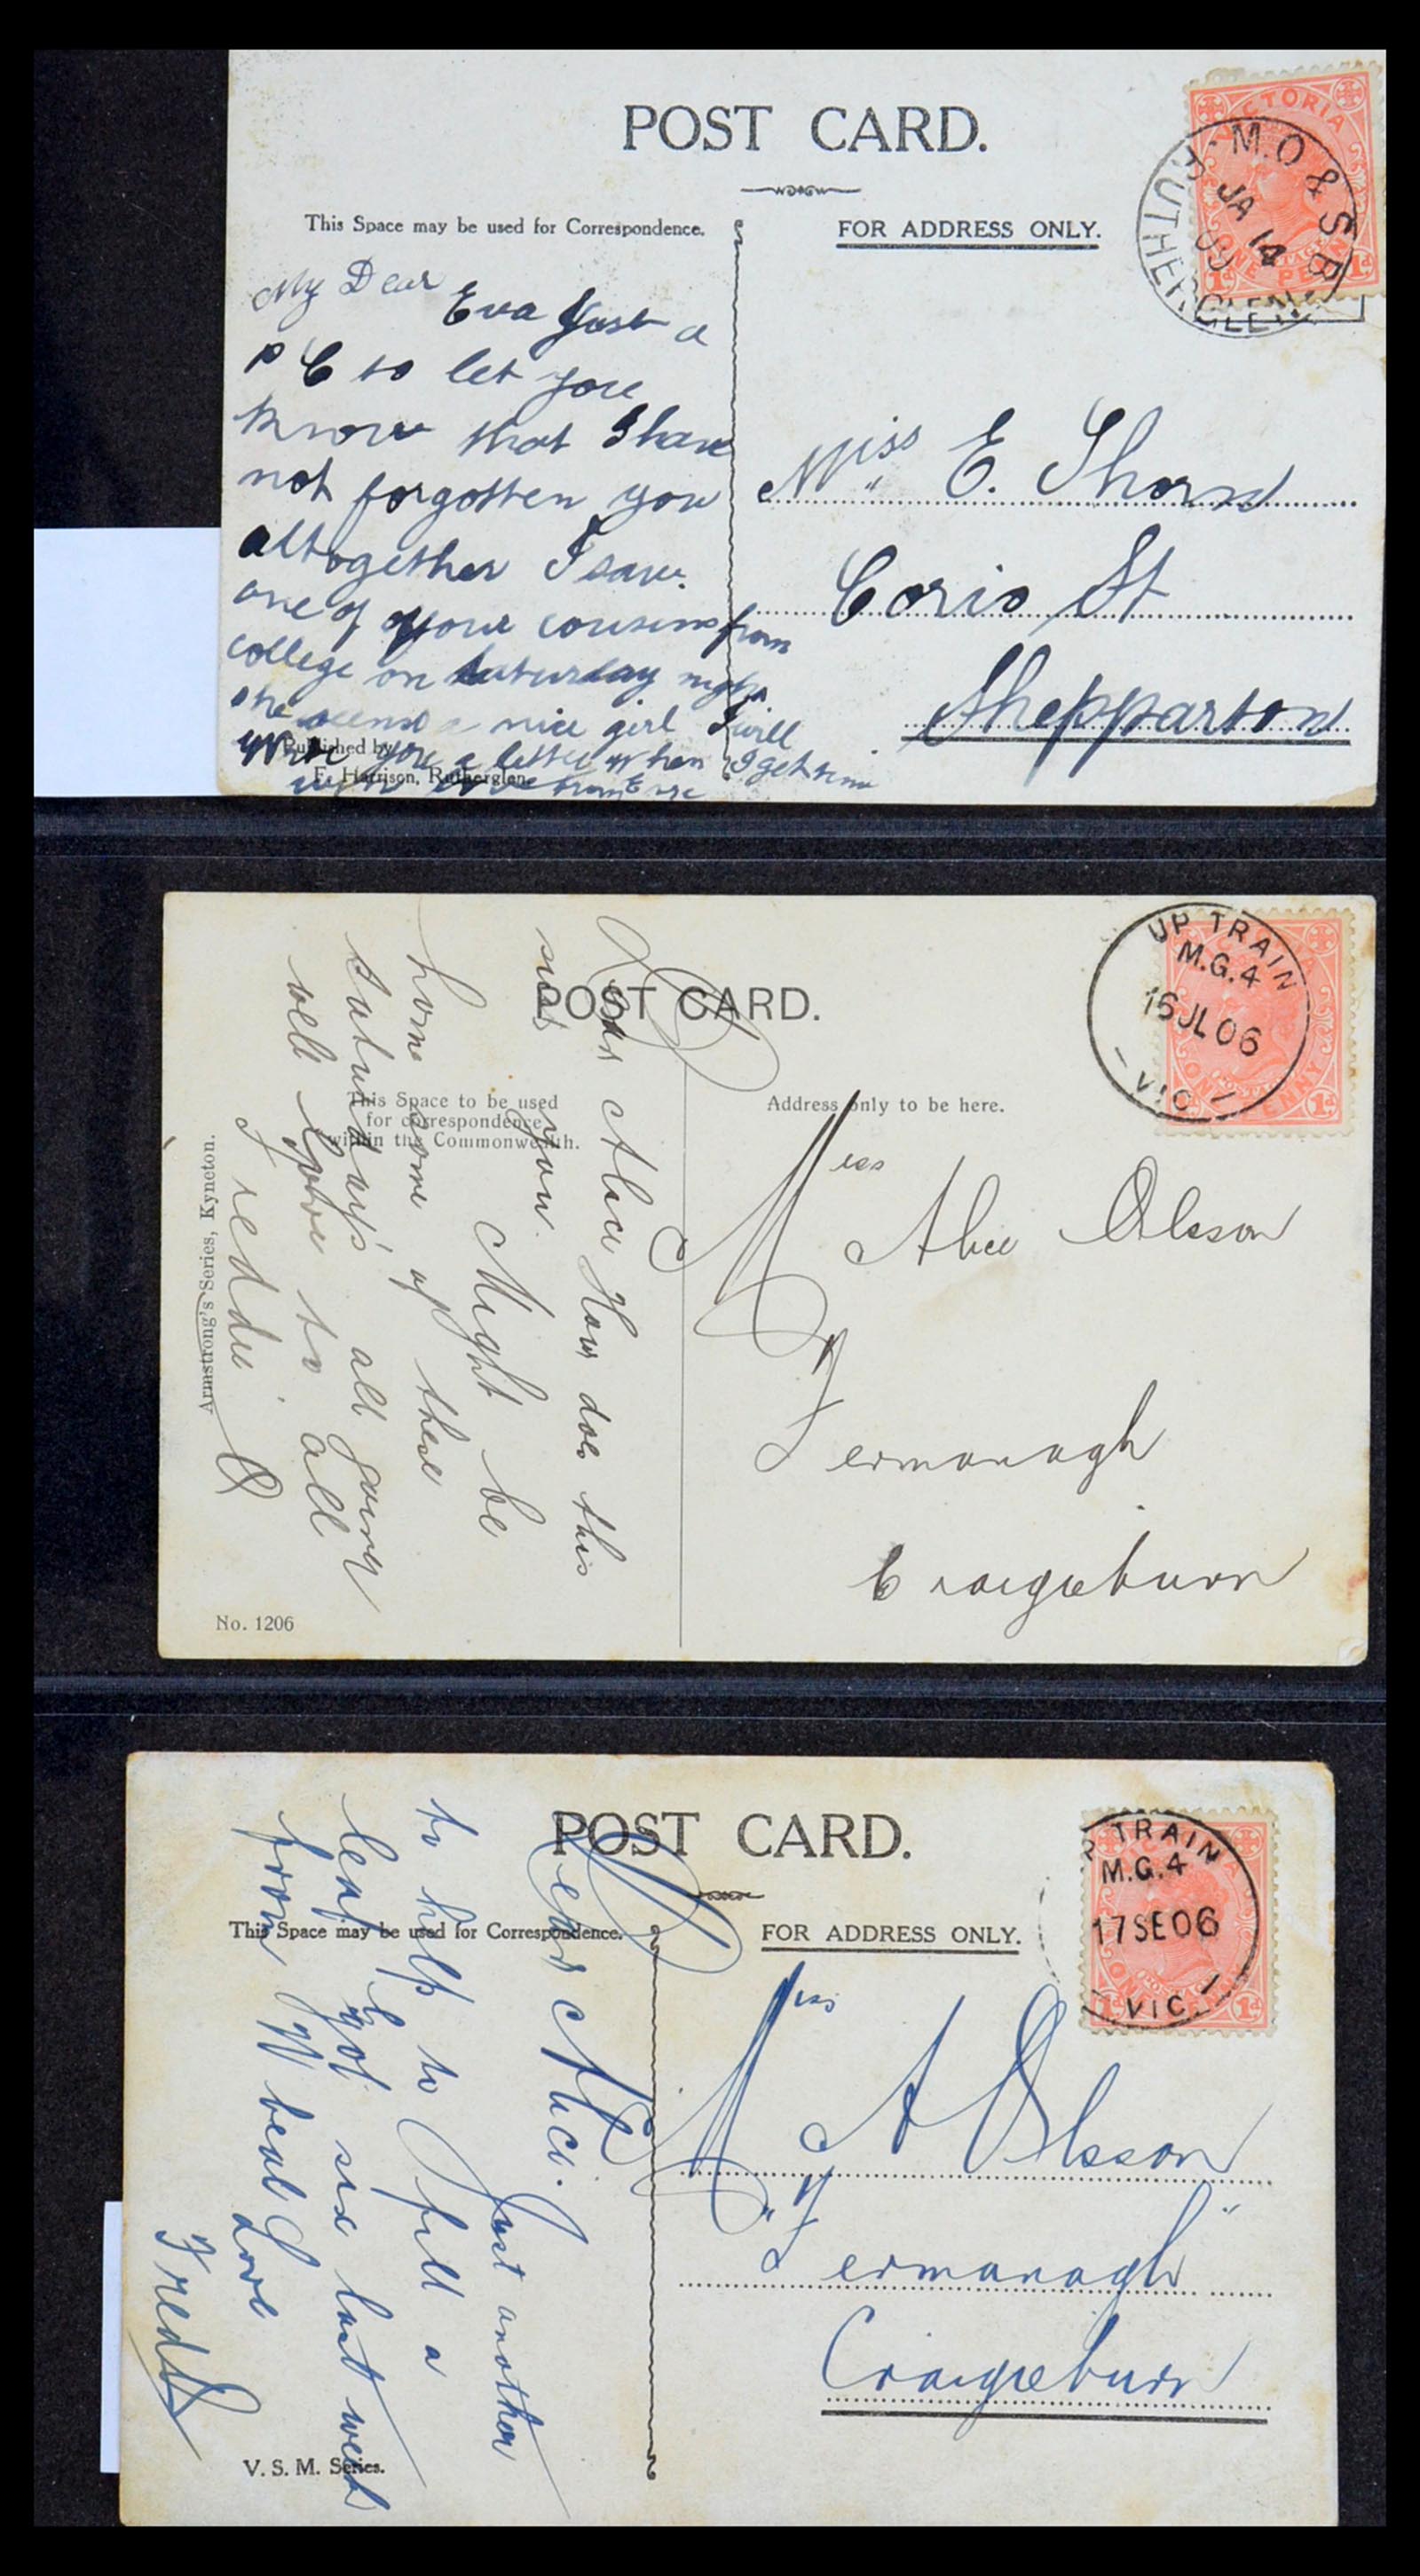 POST CARD.
This Space may be used for Correspondence.
FOR ADDRESS ONLY.
VICTORIA
ONE PENNY
1d 1d
M.O & S.B
JA 14
09
RUTHERGLEN
My Dear Eva Just a
P C to let you
know that I have
not forgotten you
altogether I saw
one of your cousins from
college on Saturday night
she seems a nice girl I will
write you a letter when I get time
with love from
Published by
F. Harrison, Rutherglen.
Miss E. Thorn
Corio St
Shepparton
POST CARD.
This Space to be used
for correspondence
within the Commonwealth.
Address only to be here.
UP TRAIN
M.G.4
16 JL 06
VIC
ONE PENNY
1d
Dear Alice How does this
suit you. Might be
home some of these
Saturdays all going
well love to all
Freddie O
Miss Alice Olsson
Fermanagh
Craigieburn
Armstrong's Series, Kyneton.
No. 1206
POST CARD.
This Space may be used for Correspondence.
FOR ADDRESS ONLY.
UP TRAIN
M.G.4
17 SE 06
VIC
1d 1d
Dear Alice. Just another
to help to fill a
leaf got six last week
from W beal Love
Fred O
Miss A Olsson
"Fermanagh"
Craigieburn
V. S. M. Series.